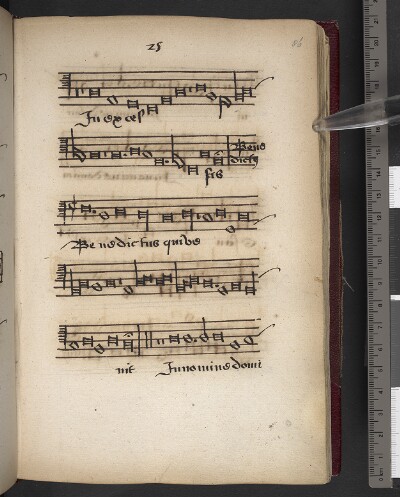 25
In ex cel
Bene
dictus
sis
Be ne dic tus qui ve
nit In no mine domi